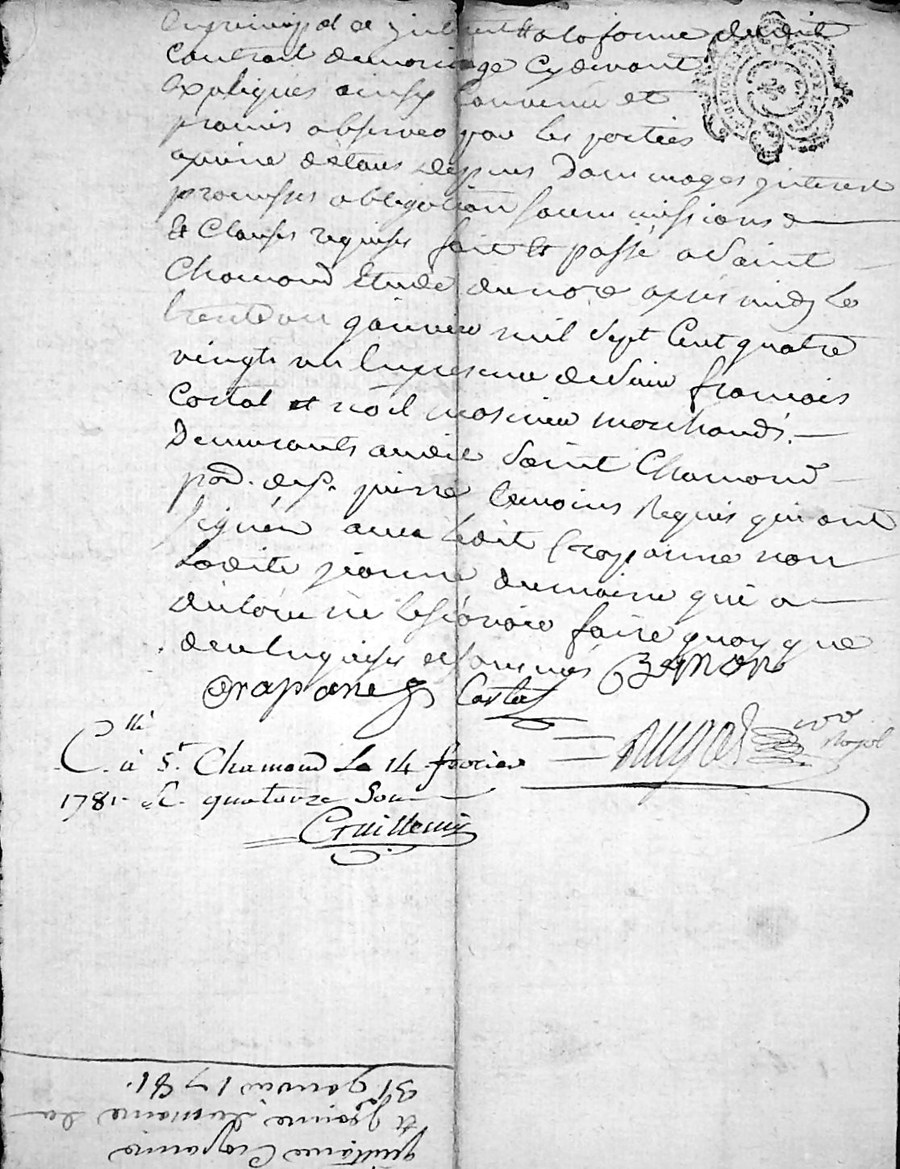 en principal et interet a la forme dudit
Contrat de mariage Cydevant
Expliqués ainsy Convenu et
promis observer par les parties
a peine de tous depens Dommages interest
promesses obligation soummissions
Et Clauses requises fait Et passé a Saint
Chamond Etude du nore apres midy Le
trente un janvier mil Sept Cent quatre
vingt un En presence de Sieur françois
Costal et noël marchands
Demeurants audit Saint Chamond
temoins Requis qui ont
signés avec Ledit Crapanne non
Ladite jeanne dumaine qui a
declaré ne le sçavoir faire quoy que
de ce Enquise et sommés
Crapane
C.llé à St. Chamond Le 14 fevrier
1781. R. quatorze Sous
guillaume Crapanne
et jeanne dumaine du
31e janvier 1781.